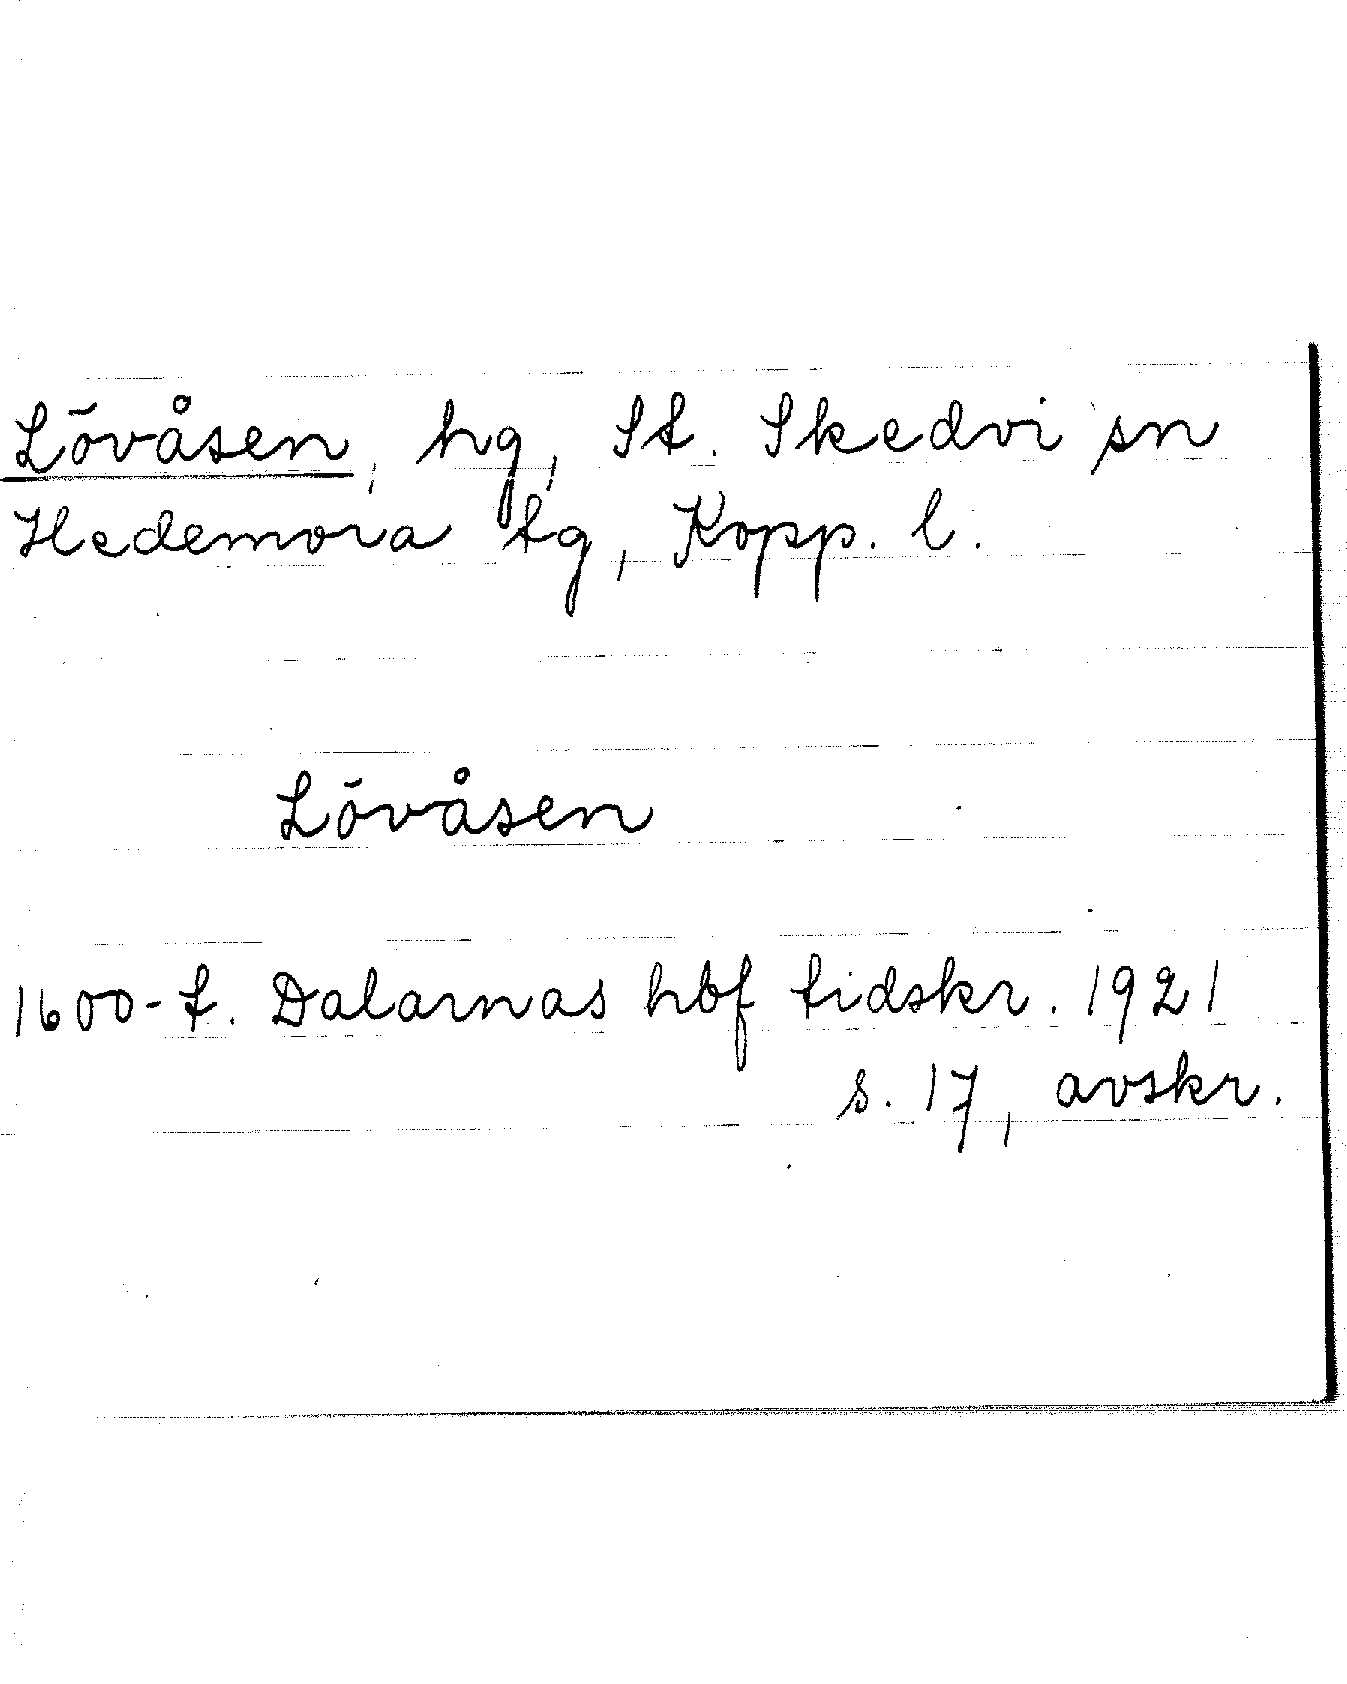 Lövåsen, hg, St. Skedvi sn
Hedemora tg, Kopp. l.
Lövåsen
1600-t. Dalarnas hbf tidskr. 1921
s. 17, avskr.